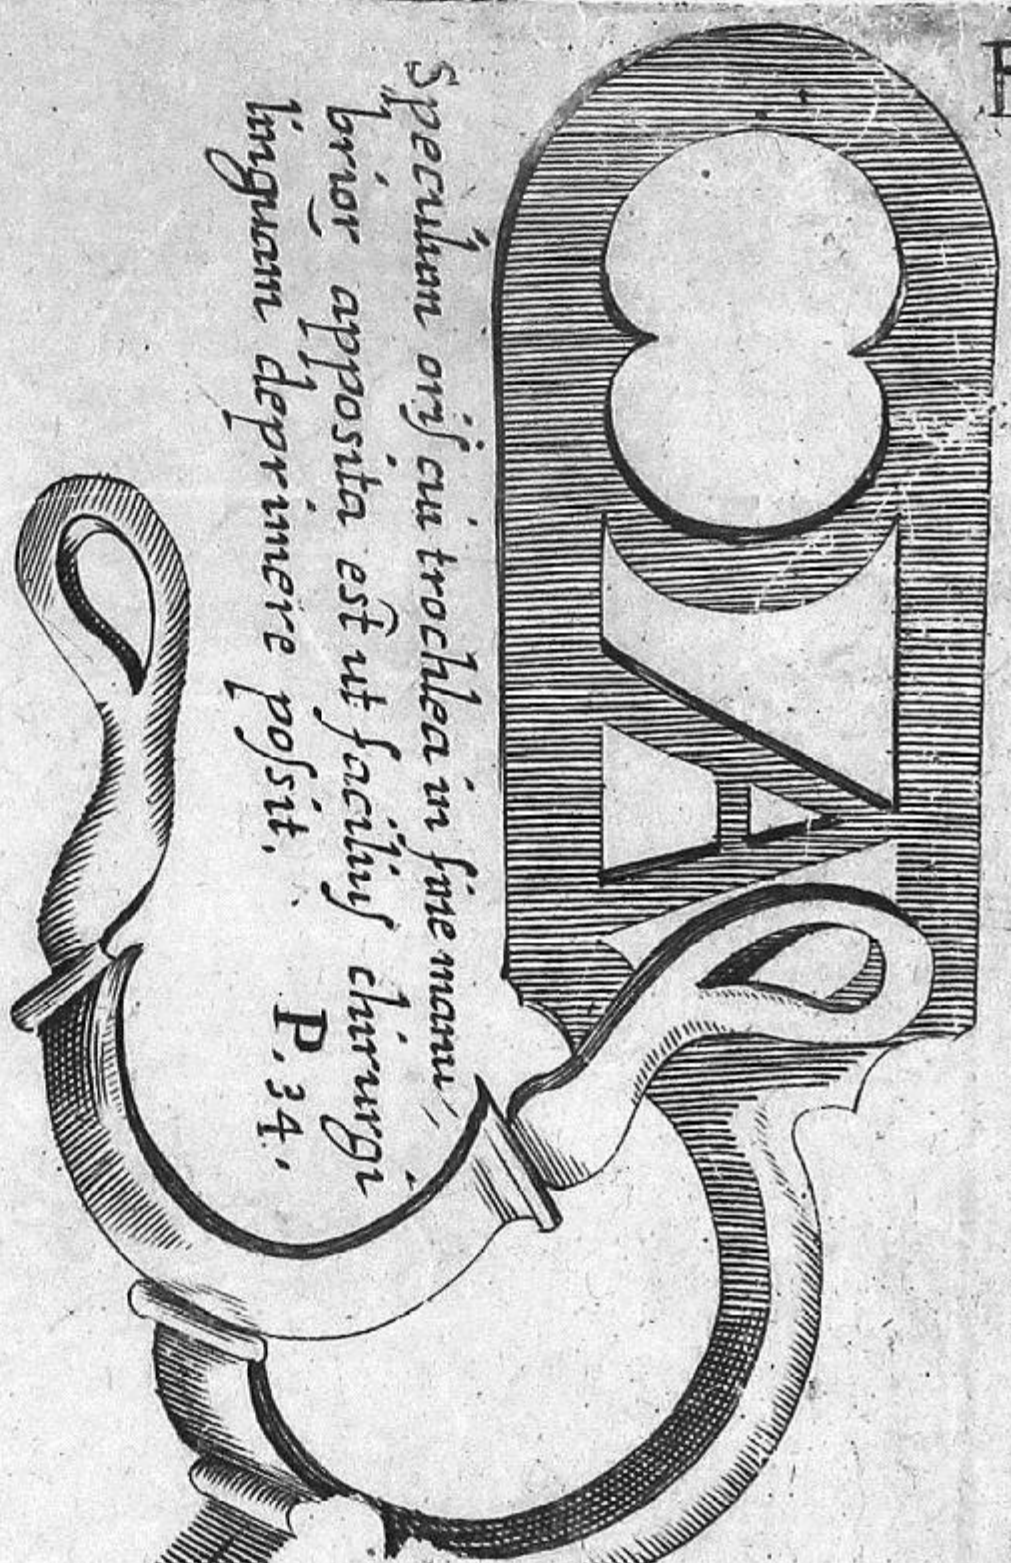 Speculum oriſ cui trochlea in fine manu,
brioꝝ apposita est ut faciliuſ chirurgi
linguam deprimere poſsit. P. 34.